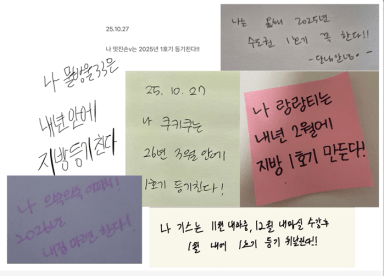 25.10.27
나 멋진손v는 2025년 1호기 등기친다!!
나는 올해 2025년
수도권 1호기 꼭 한다!!
나 물방울33은
내년 안에
지방 등기친다
25. 10. 27
나 쿠키쿠는
26년 3월 안에
1호기 등기친다!
나 랑랑티는
내년 2월에
지방 1호기 만든다!
나 의쓱의쓱
2026년
내집마련 한다!
나 기스는 11월 내마중, 12월 내마실 수강후
1월 내에 1호기 등기 취발한다!!